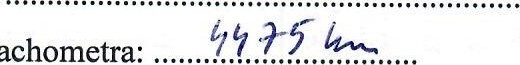 achometra: 4475 km